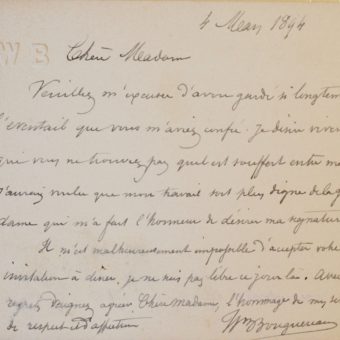 4 Mars 1894
WB
Chère Madame
Veuillez m'excuser d'avoir gardé si longtem
l'éventail que vous m'aviez confié. Je désire vivem
que vous ne trouviez pas qu'il est souffert entre me
J'aurais voulu que mon travail soit plus digne de la g
dame qui m'a fait l'honneur de désirer ma signature
Il m'est malheureusement impossible d'accepter votre
invitation à dîner, je ne suis pas libre ce jour là. Avec
regrets daignez agréer Chère Madame, l'hommage de my se
de respect et d'affection
Wm Bouguereau